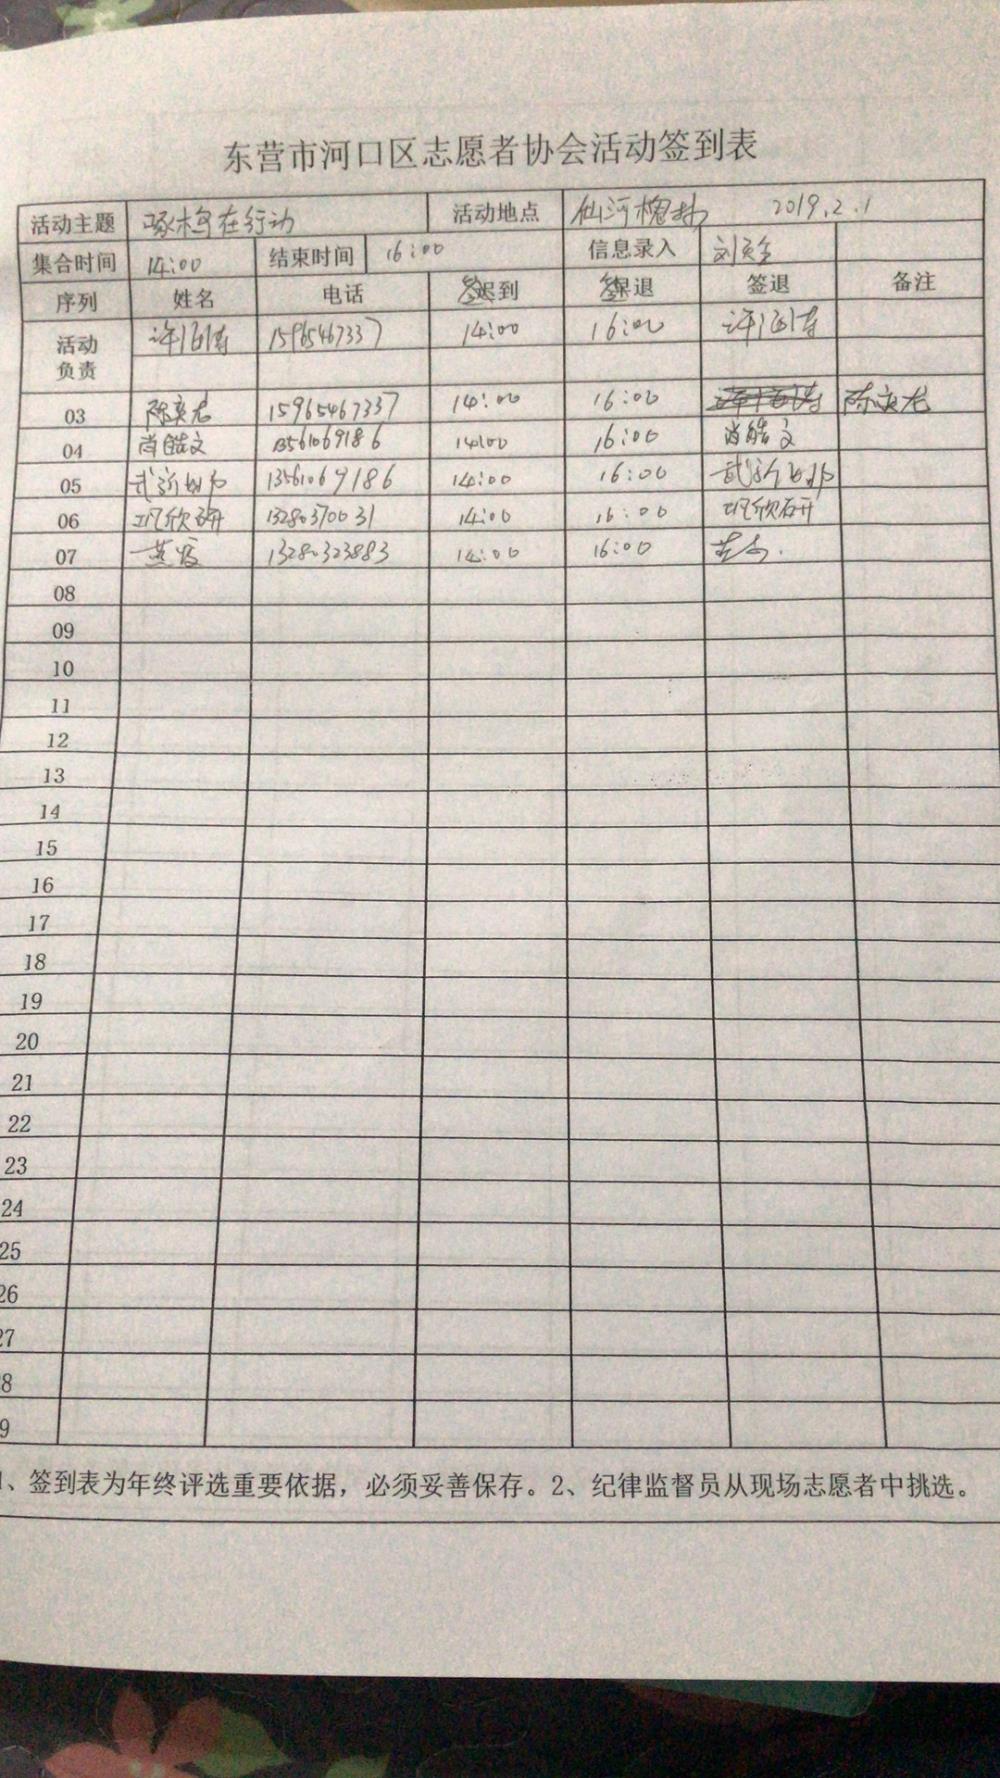 东营市河口区志愿者协会活动签到表
活动主题 啄木鸟在行动 活动地点 仙河槐林 2019.2.1
集合时间 14:00 结束时间 16:00 信息录入
序列 姓名 电话 签到 签退 签退 备注
活动负责 许 15965467337 14:00 16:00 许
03 陈奕 15965467337 14:00 16:00 陈奕
04 尚皓文 13561069186 14:00 16:00 尚皓文
05 武新 13561069186 14:00 16:00 武新
06 巩欣研 13280370031 14:00 16:00 巩欣研
07 13280323883 14:00 16:00
08
09
10
11
12
13
14
15
16
17
18
19
20
21
22
23
24
25
26
27
8
9
1、签到表为年终评选重要依据，必须妥善保存。2、纪律监督员从现场志愿者中挑选。